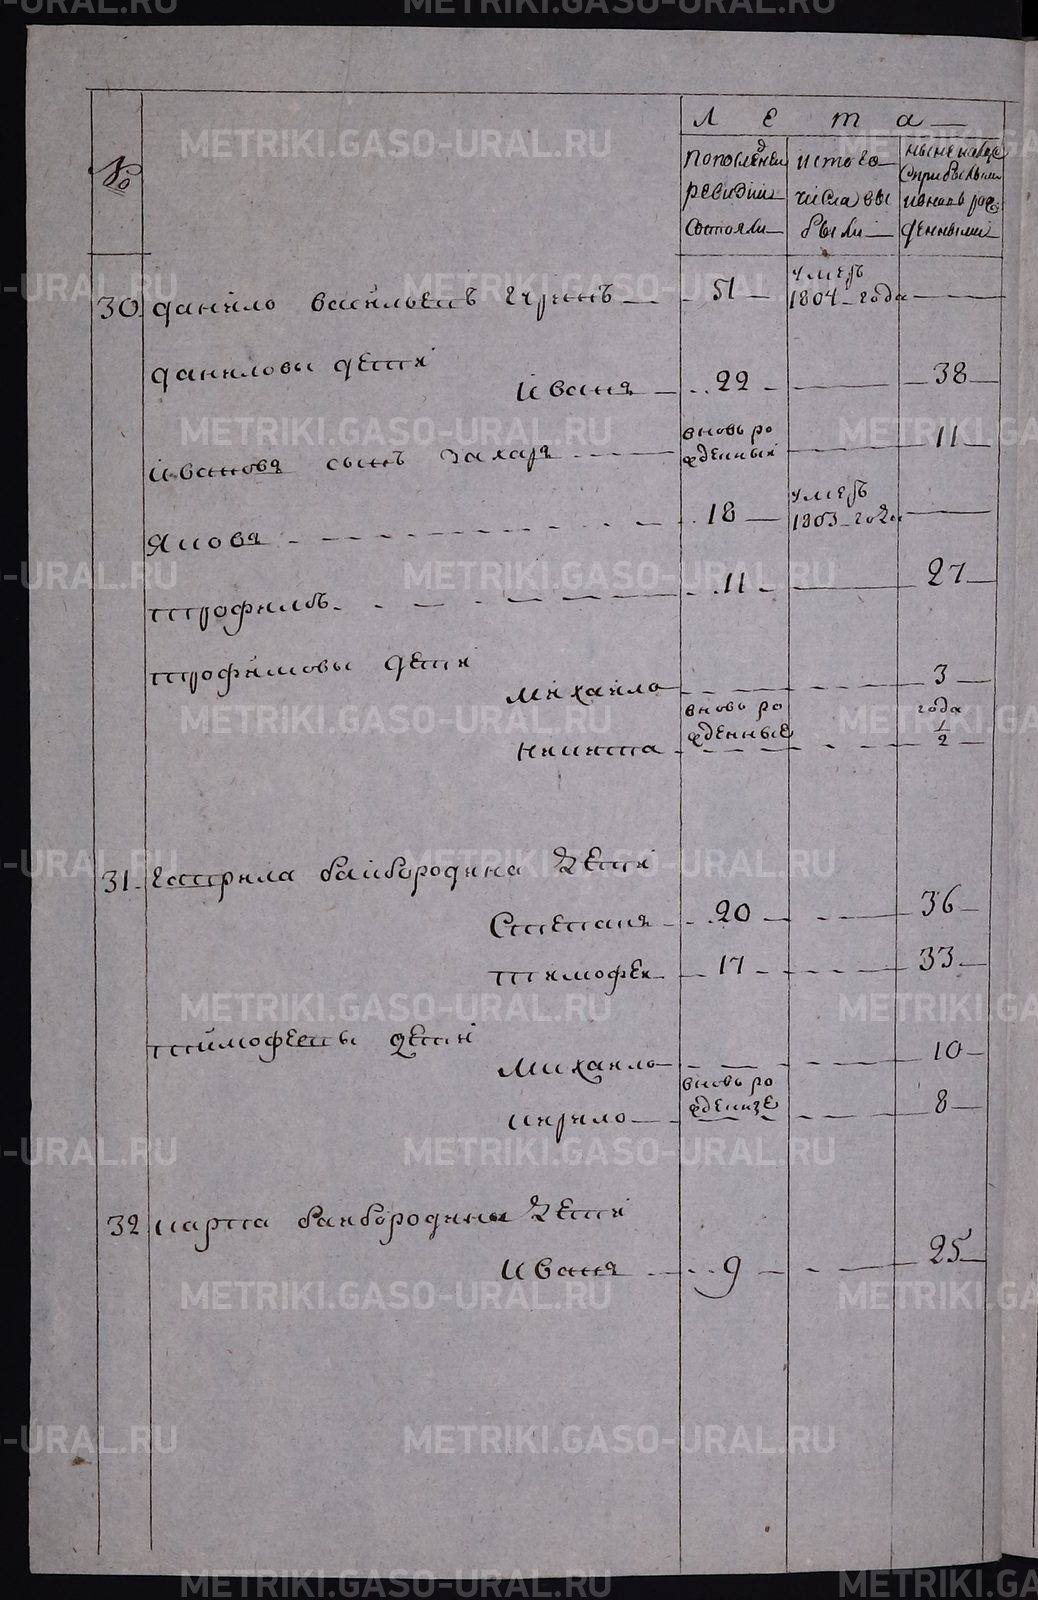 Л е т а
№
по последней ревизии состояли
и стого числа выбыли
ныне на лицо с прибылыми и вновь рожденными
30. данило васильевъ гуринъ 51 умеръ 1804 года
даниловы дети
иванъ 22 38
ивановъ сынъ захаръ вновь рожденный 11
яковъ 18 умеръ 1803 года
трофимъ 11 27
трофимовы дети
михаило 3
никита вновь рожденные года 1/2
31. гаврила байбородина дети
степанъ 20 36
тимофеи 17 33
тимофеевы дети
михаило 10
кирило вновь рожденные 8
32 карпа байбородины дети
иванъ 9 25
METRIKI.GASO-URAL.RU